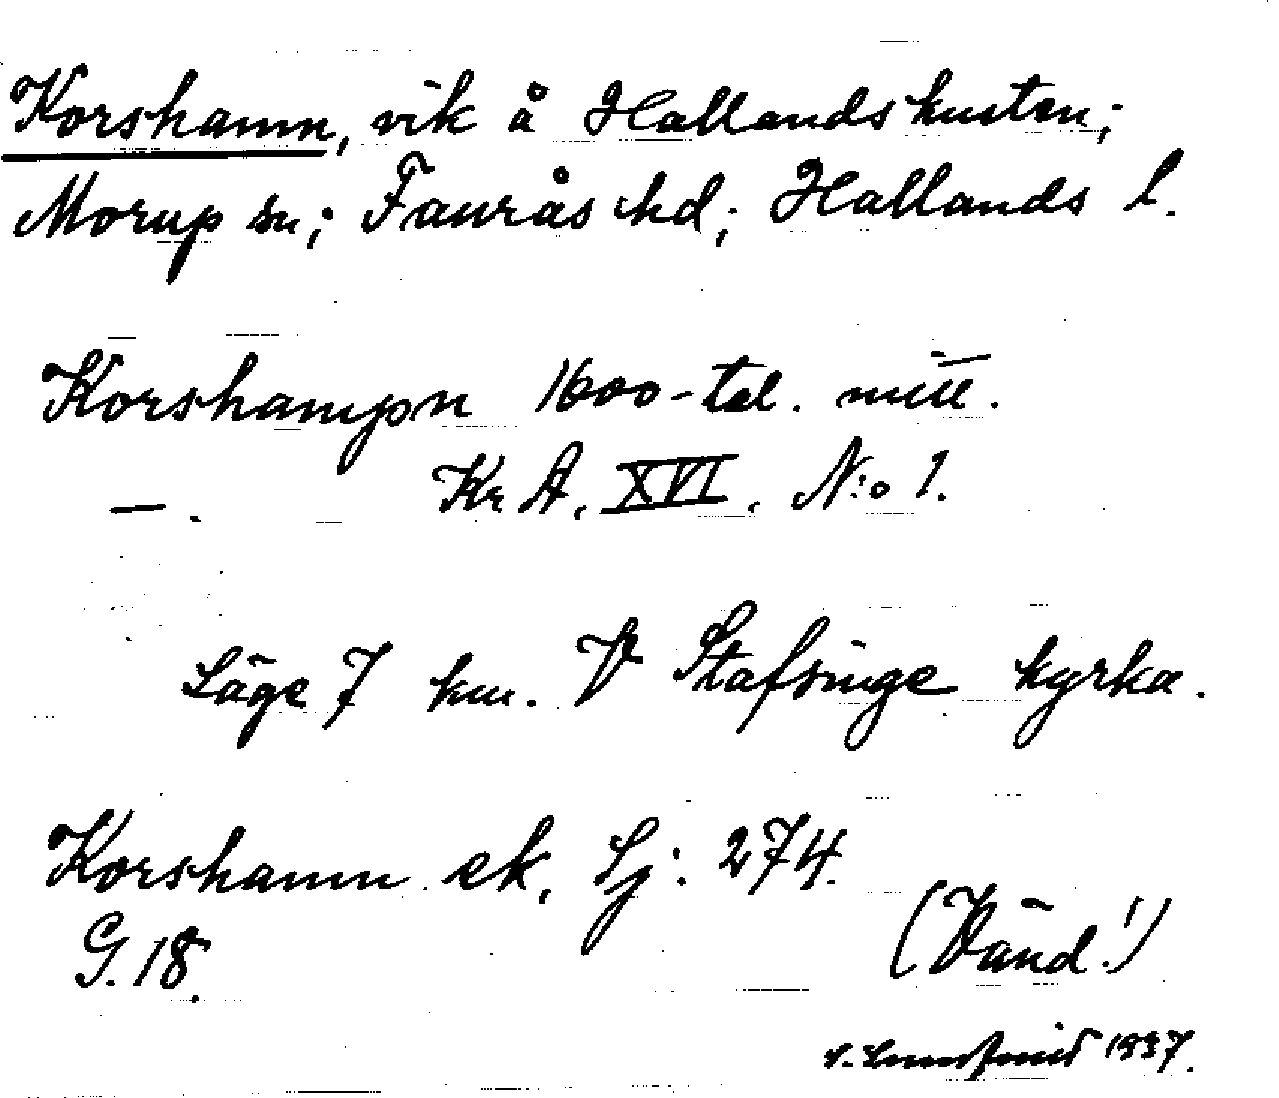 Korshamn, vik å Hallandskusten;
Morup sn; Faurås hd; Hallands l.
Korshampn 1600-tal. mitt.
—. Kr A. XVI. N:o 1.
Läge 7 km. V Stafsinge kyrka.
Korshamn ek. Sj: 274.
G. 18.
(Vänd!)
1937.